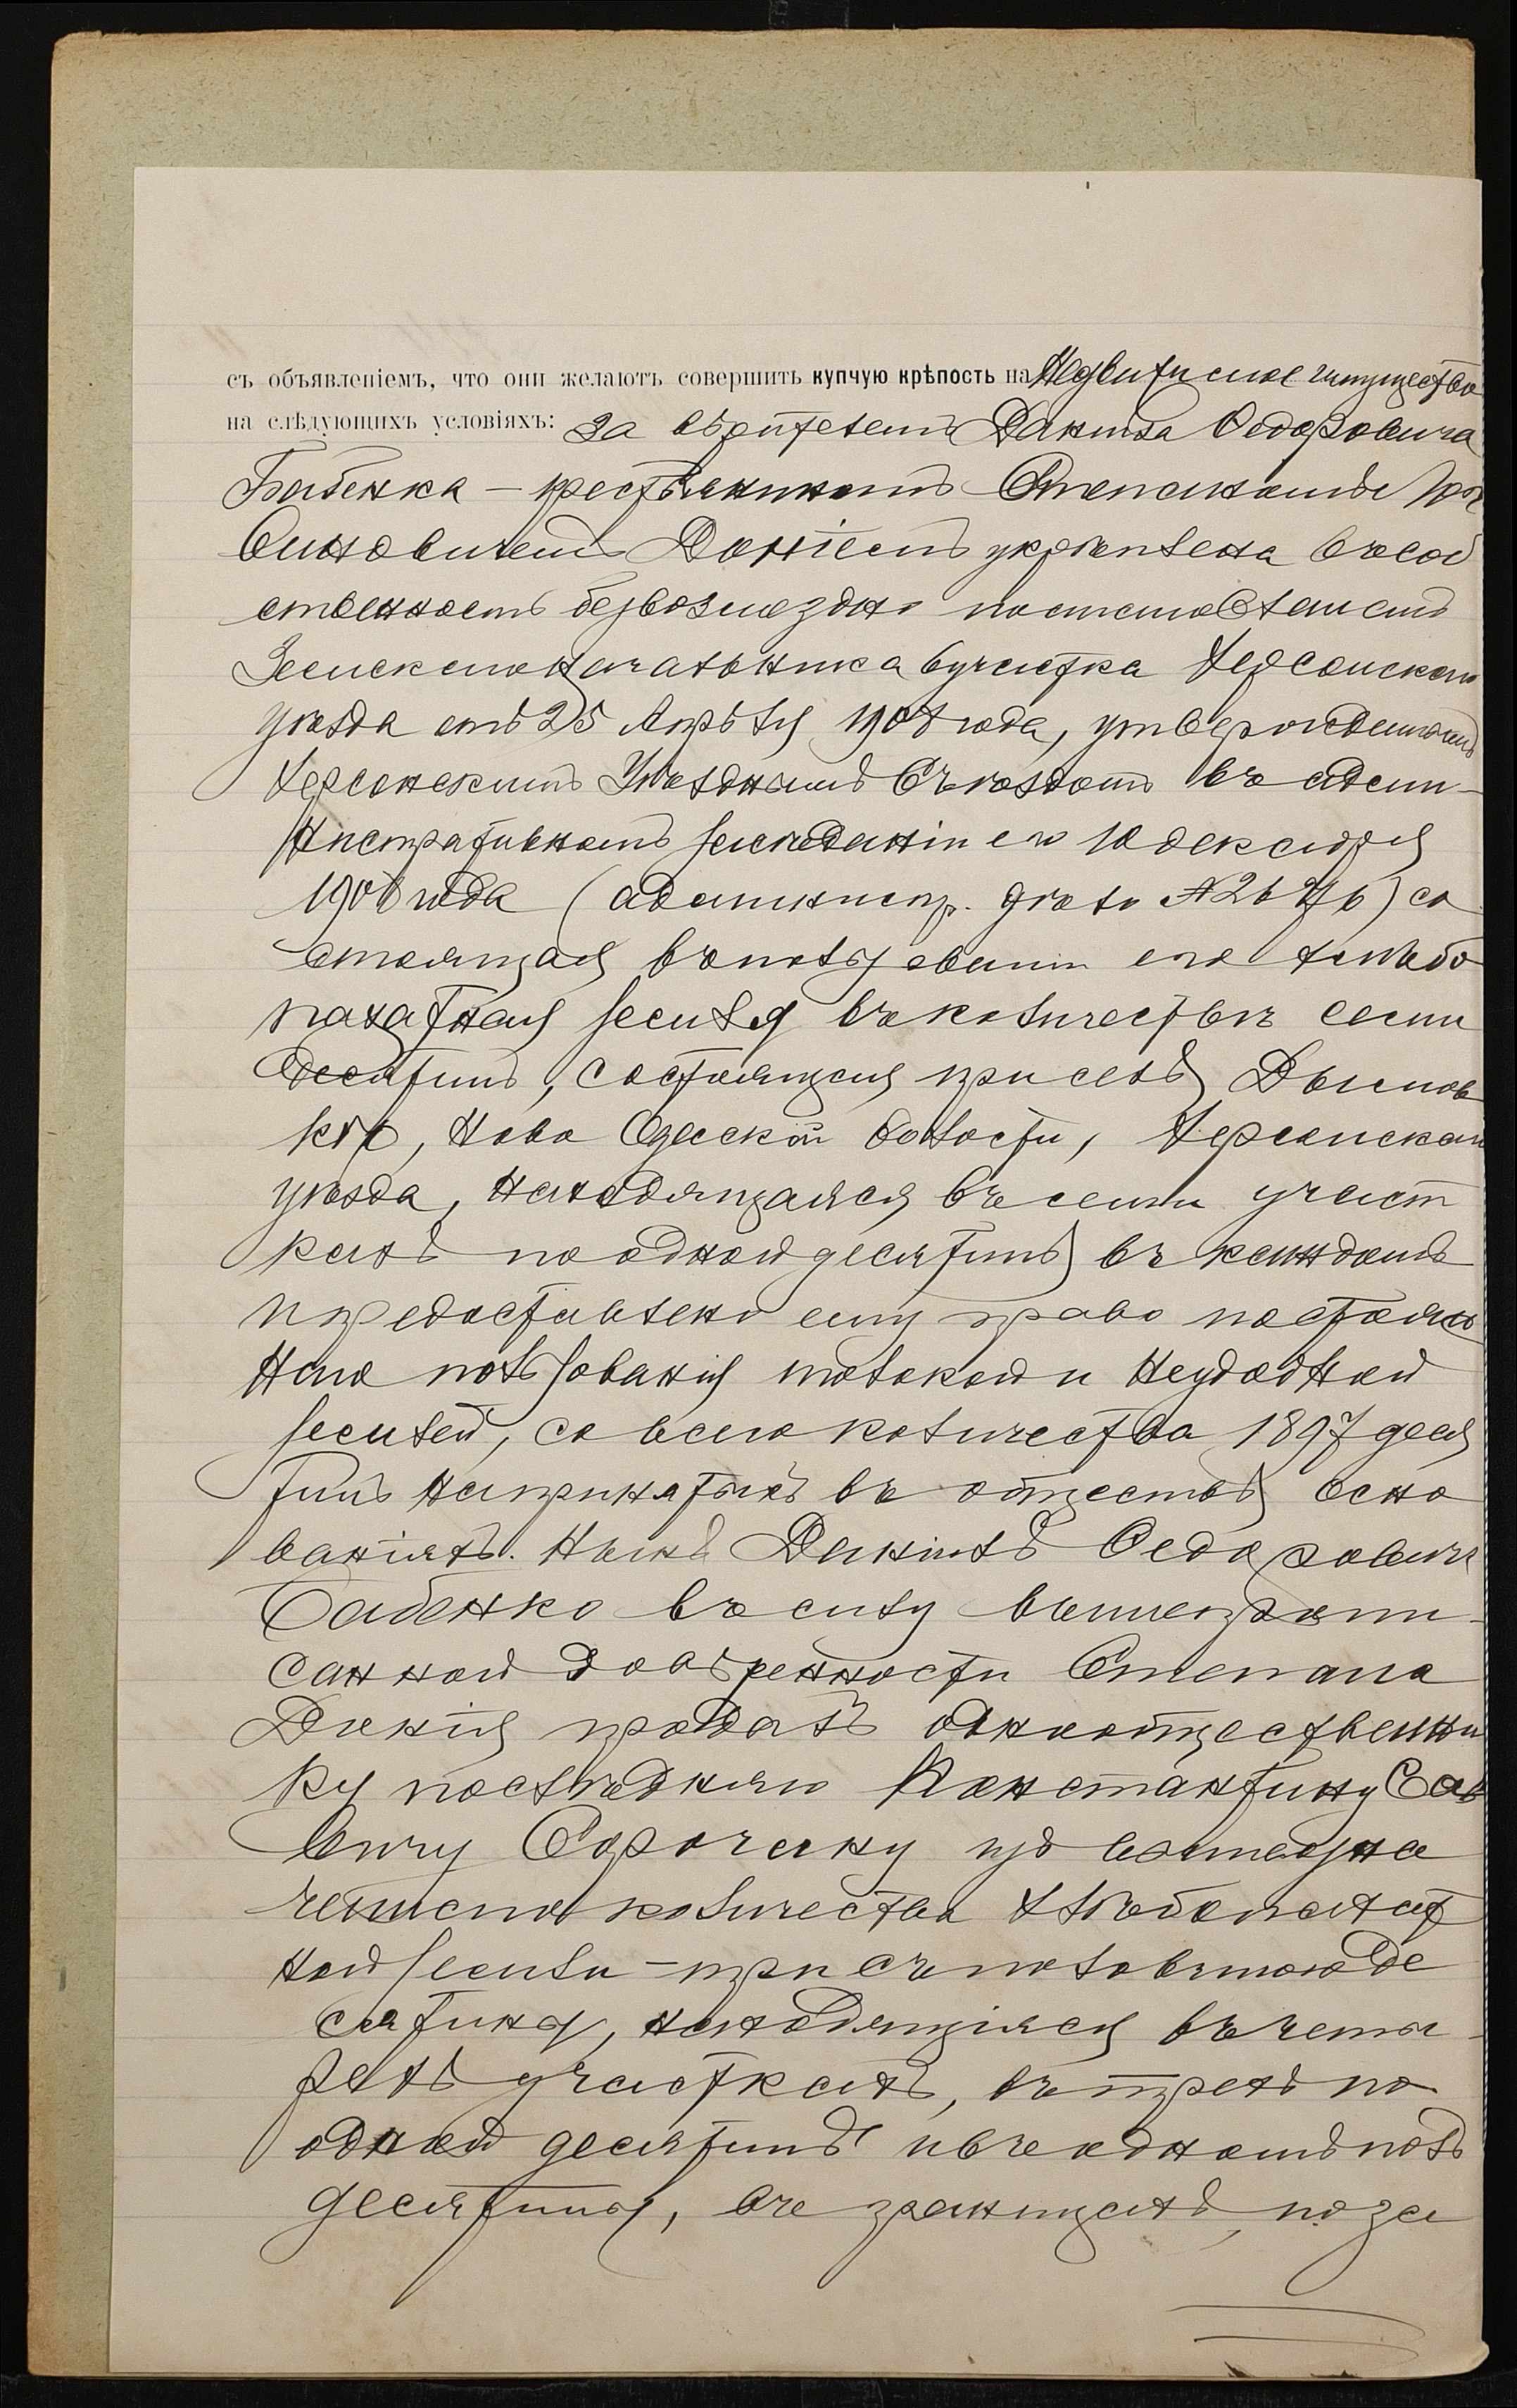 съ объявленіемъ, что они желаютъ совершить купчую крѣпость на Недвижимое имущество
на слѣдующихъ условіяхъ: За вѣрителемъ Данила Ѳедоровича
Бабенка – крестьяниномъ Степаномъ
Онновичемъ Доніемъ укрѣплена въ соб
ственность безвозмездно постановленіемъ
Земскаго Начальника 6 участка Херсонскаго
уѣзда отъ 25 Апрѣля 1908 года, утвержденнымъ
Херсонскимъ Уѣзднымъ Съѣздомъ въ адми-
нистративномъ засѣданіи его 10 декабря
1908 года (админист. дѣло № ) со
стоящая въ пользованіи его хлѣбо
пахатная земля въ количествѣ семи
десятинъ, состоящая при селѣ Дымов
кѣ, Ново Одесской волости, Херсонскаго
уѣзда, находящаяся въ семи участ
кахъ по одной десятинѣ въ каждомъ
и предоставлено ему право постоян
наго пользованія толокой и неудобной
землей, со всего количества 1897 деся
тинъ на принятыхъ въ обществѣ осно
ваніяхъ. Нынѣ Данилъ Ѳедоровичъ
Бабенко въ силу вышепропи-
санной довѣренности Степана
Донія продалъ однообщественни
ку послѣдняго Константину Сав
вичу Сорочану изъ вышеозна
ченнаго количества хлѣбопахат
ной земли – три съ половиною де
сятины, находящіяся въ четы-
рехъ участкахъ, въ трехъ по
одной десятинѣ и въ одномъ полъ
десятины, въ границахъ, по за